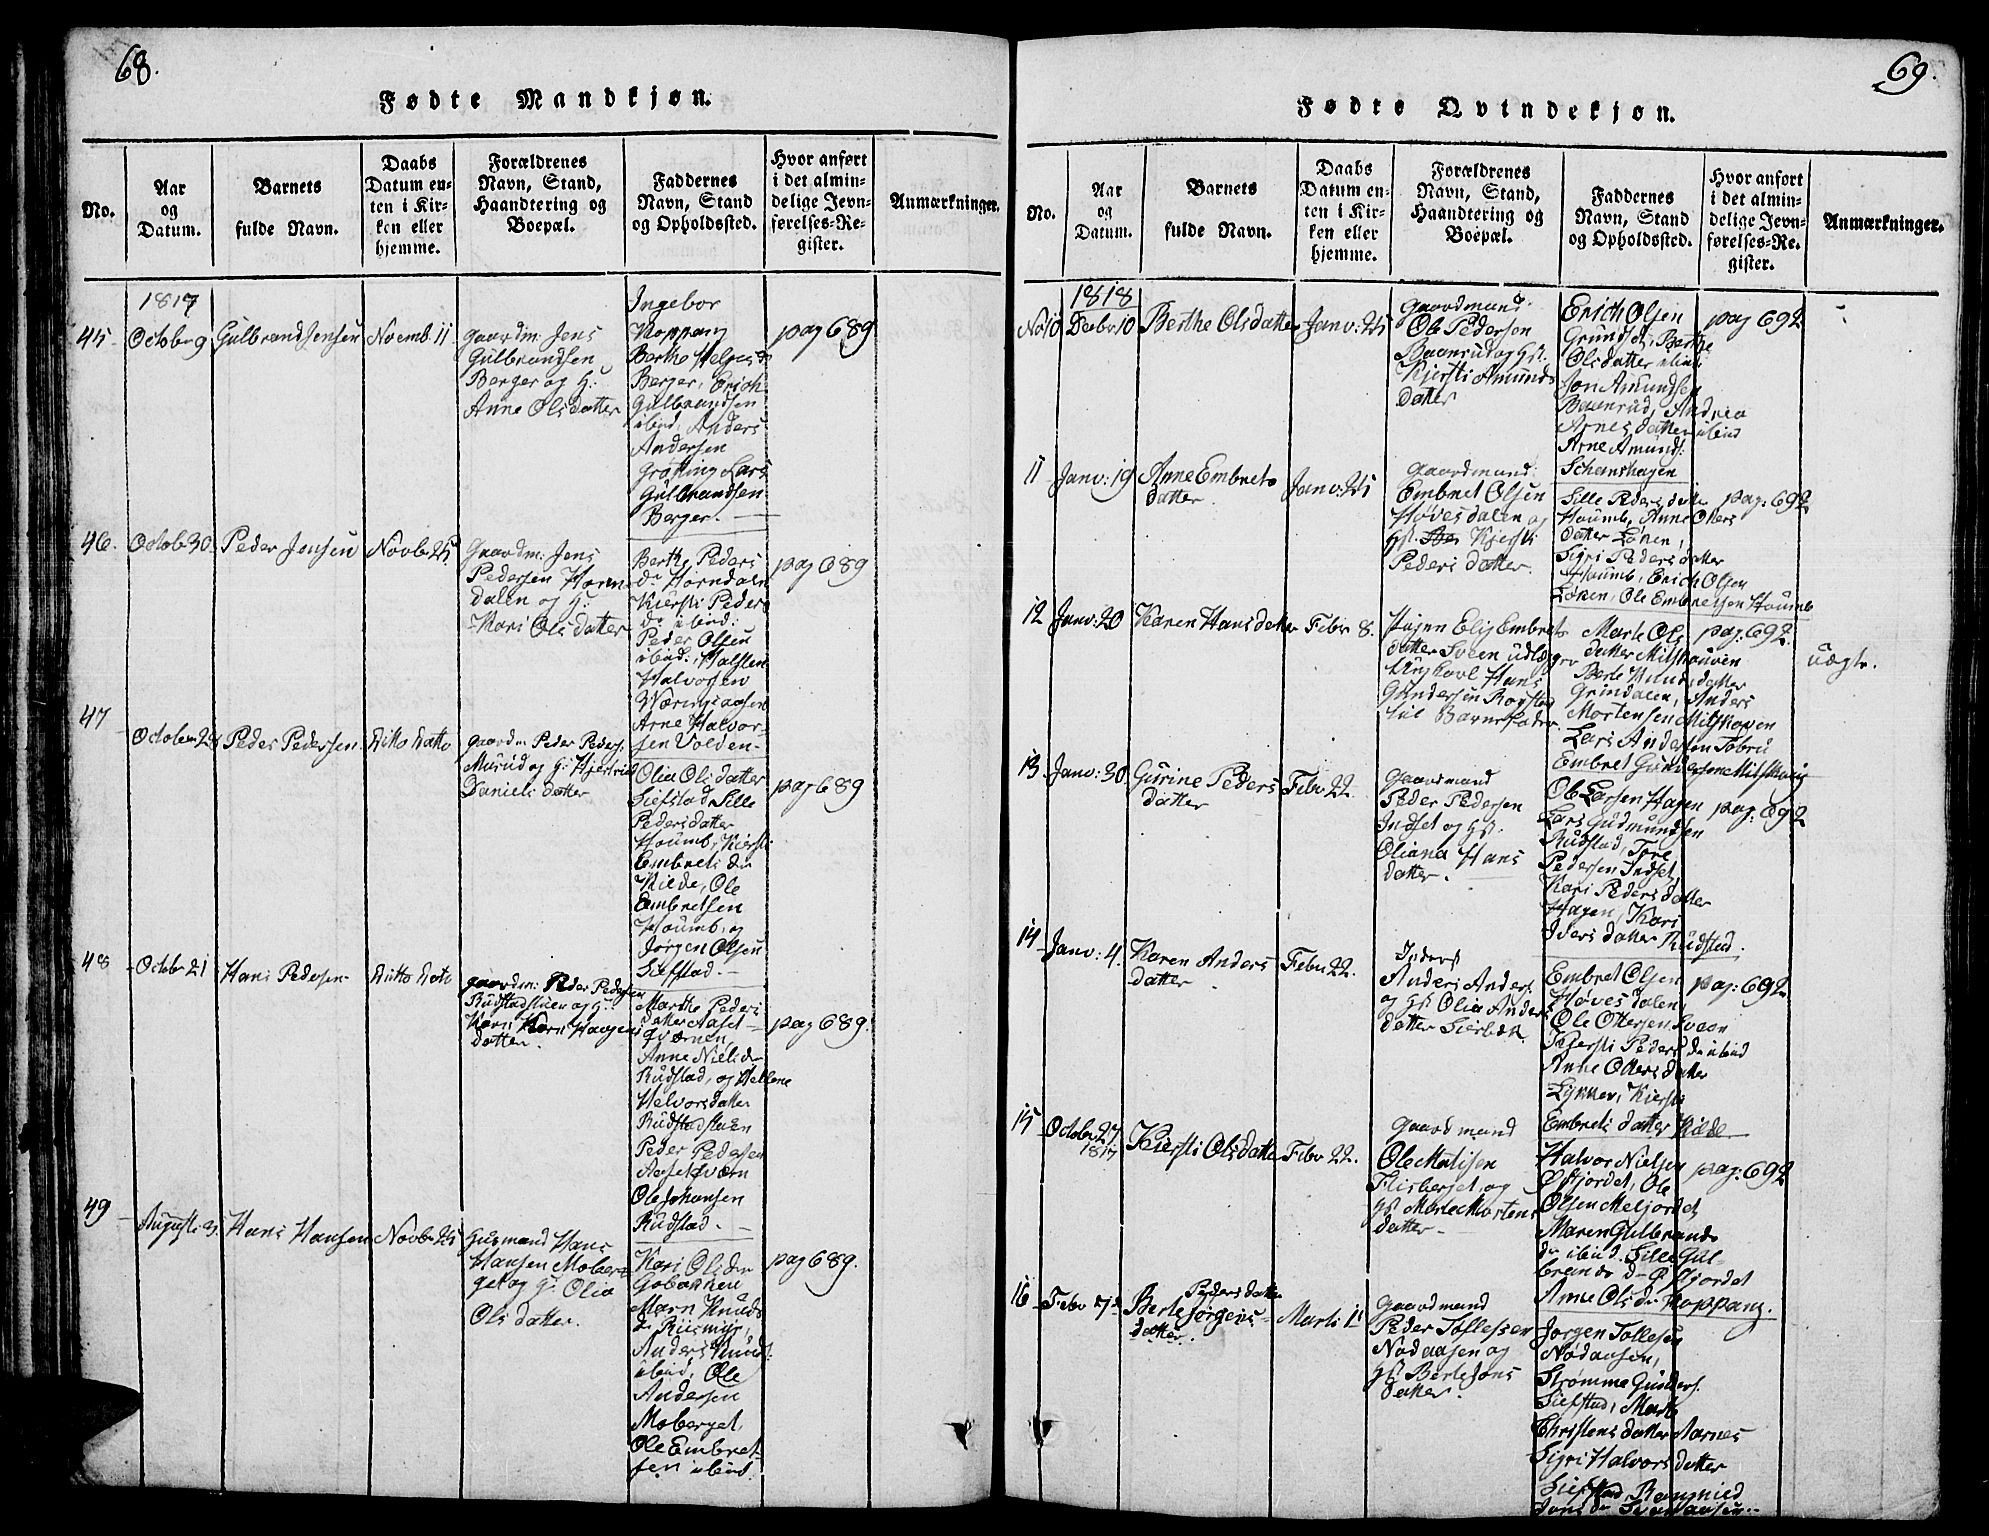 68.
Fødte Mandkjøn.
No.
Aar
og
Datum.
Barnets
fulde Navn.
Daabs
Datum en-
ten i Kir-
ken eller
hjemme.
Forældrenes
Navn, Stand,
Haandtering og
Boepæl.
Faddernes
Navn, Stand
og Opholdssted.
Hvor anført
i det almin-
delige Jevn-
førelses-Re-
gister.
Anmærkninger.
1817
45 October 9 Gulbrand Jensen Novemb. 11
Gaardm: Jens
Gulbrandsen
Berger og H:
Anne Olsdatter
Ingebor
Koppang
Berthe Helges
Berger, Erich
Gulbrandsen
ibid, Anders
Andersen
Grøtting Lars
Gulbrandsen
Berger.
pag 689
46. Octob 30. Peder Jensen Novb 25.
Gaardm: Jens
Pedersen Horn
dalen og H:
Kari Olsdatter
Berthe Peders
dr Horndalen
Kiersti Peders
dr ibid:
Peder Olsen
ibid: Halsten
Halvorsen
Wæringsaasen
Arne Halvor-
sen Volden-
pag 689
47 October 28 Peder Pedersen Ditto Datto
gaardm Peder Peders.
Murud og H:
Daniels datter
Olia Olsdatter
Siefstad Sille
Pedersdatter
Houmb, Kiersti
Embrets dr
Kilde, Ole
Embretsen
Houmb, og
Jørgen Olsen
Siefstad.
pag 689
48 Octobr 21 Hans Pedersen Ditto Dato
gaardm: Peder Pedersen
Rudstadstuen og H:
Kari Haagens
datter.
Marthe Peders
datter Aaset
qværnen,
Anne Niels dr
Rudstad, og Hellene
Helvorsdatter
Rudstadstuen
Peder Pedersen
Aasetqværn
Ole Johansen
Rudstad.
pag 689.
49 Augusti 3. Hans Hansen Novb 25
Husmand Hans
Hansen Mober
get og H: Olia
Olsdatter.
Kari Ols dr
Gobakken
Marn Knuds
dr Riismyr,
Anders Knuds.
ibid, Ole
Andersen
Moberget
Ole Embret-
sen ibid.
pag 689.
69.
Fødte Qvindekjøn.
No.
Aar
og
Datum.
Barnets
fulde Navn.
Daabs
Datum en-
ten i Kir-
ken eller
hjemme.
Forældrenes
Navn, Stand,
Haandtering og
Boepæl.
Faddernes
Navn, Stand
og Opholdssted.
Hvor anført
i det almin-
delige Jevn-
førelses-Re-
gister.
Anmærkninger.
1818
No 10 Decbr 10 Berthe Olsdatter Janv: 25
Gaardmand
Ole Pedersen
Baanrud og Hst.
Kjersti Amunds
datter
Erich Olsen
Grundset, Berthe
Olsdatter ibid
Jon Amundsen
Baanrud, Andrea
Arnesdatter ibid
Arne Amunds:
Schanshagen
pag 692
11 Janv: 19 Anne Embrets
datter
Janv: 25
Gaardmand
Embret Olsen
Høvesdalen og
Hst. Kjersti
Peders datter.
Sille Peders datter
Houmb, Anne Otters
datter Løken,
Sigri Peders datter
Houmb, Erich Olsen
Løken, Ole Embretsen Houmb
pag: 692
12 Janv: 20 Karen Hansdatter Febr 8.
Pigen Elij Embrets
datter Sveen udlægger
Ungkarl Hans
Gundersen Rogstad
til Barnefader.
Marte Ols
datter Mitskouven
Berte Knudsdatter
Grindalen, Anders
Mortensen Mitskoven
Lars Andersen Tobru
Embret Gundersen Mitskouv
pag: 692
uægte.
13 Janv: 30. Gurine Peders
datter
Febr 22.
Gaardmand
Peder Pedersen
Indset og Hst.
Oliana Hans
datter.
Ole Larsen Hagen
Lars Gudmundsen
Rudstad, Tore
Pedersen Indset
Kari Peders datter
Hagen, Kari
Ivers datter Rudstad.
pag: 692
14 Janv: 4. Karen Anders
datter
Febr 22.
Inderst
Anders Anders.
og Hst Olia Anders
datter Sierbæk.
Embret Olsen
Høvesdalen,
Ole Ottersen Sveen
Kjersti Peders dr ibid
Anne Otters datter
Lykken, Kiersti
Embrets datter Kilde
pag: 692
15 Octobr 27
1817
Kiersti Olsdatter Febr 22.
Gaardmand
Ole Matisen
Flisberget og
Hst Marte Mortens
datter
Halvor Nielsen
Øfjordet, Ole
Olsen Meljordet
Maren Gulbrands
dr ibid. Sille Gul-
brands dr Øfjordet
Anne Ols dr Koppang.
pag: 692
16 Febr 7de
Pedersdatter
Berte Jørgens
datter.
Marti 11
Gaardmand
Peder Tollefsen
Nødaasen og
Hst Berte Jons
datter.
Jørgen Tollefsen
Nødaasen,
Strømme Gunders.
Siefstad, Marte
Christens datter Aarnes
Sigri Halvors datter
Siefstad